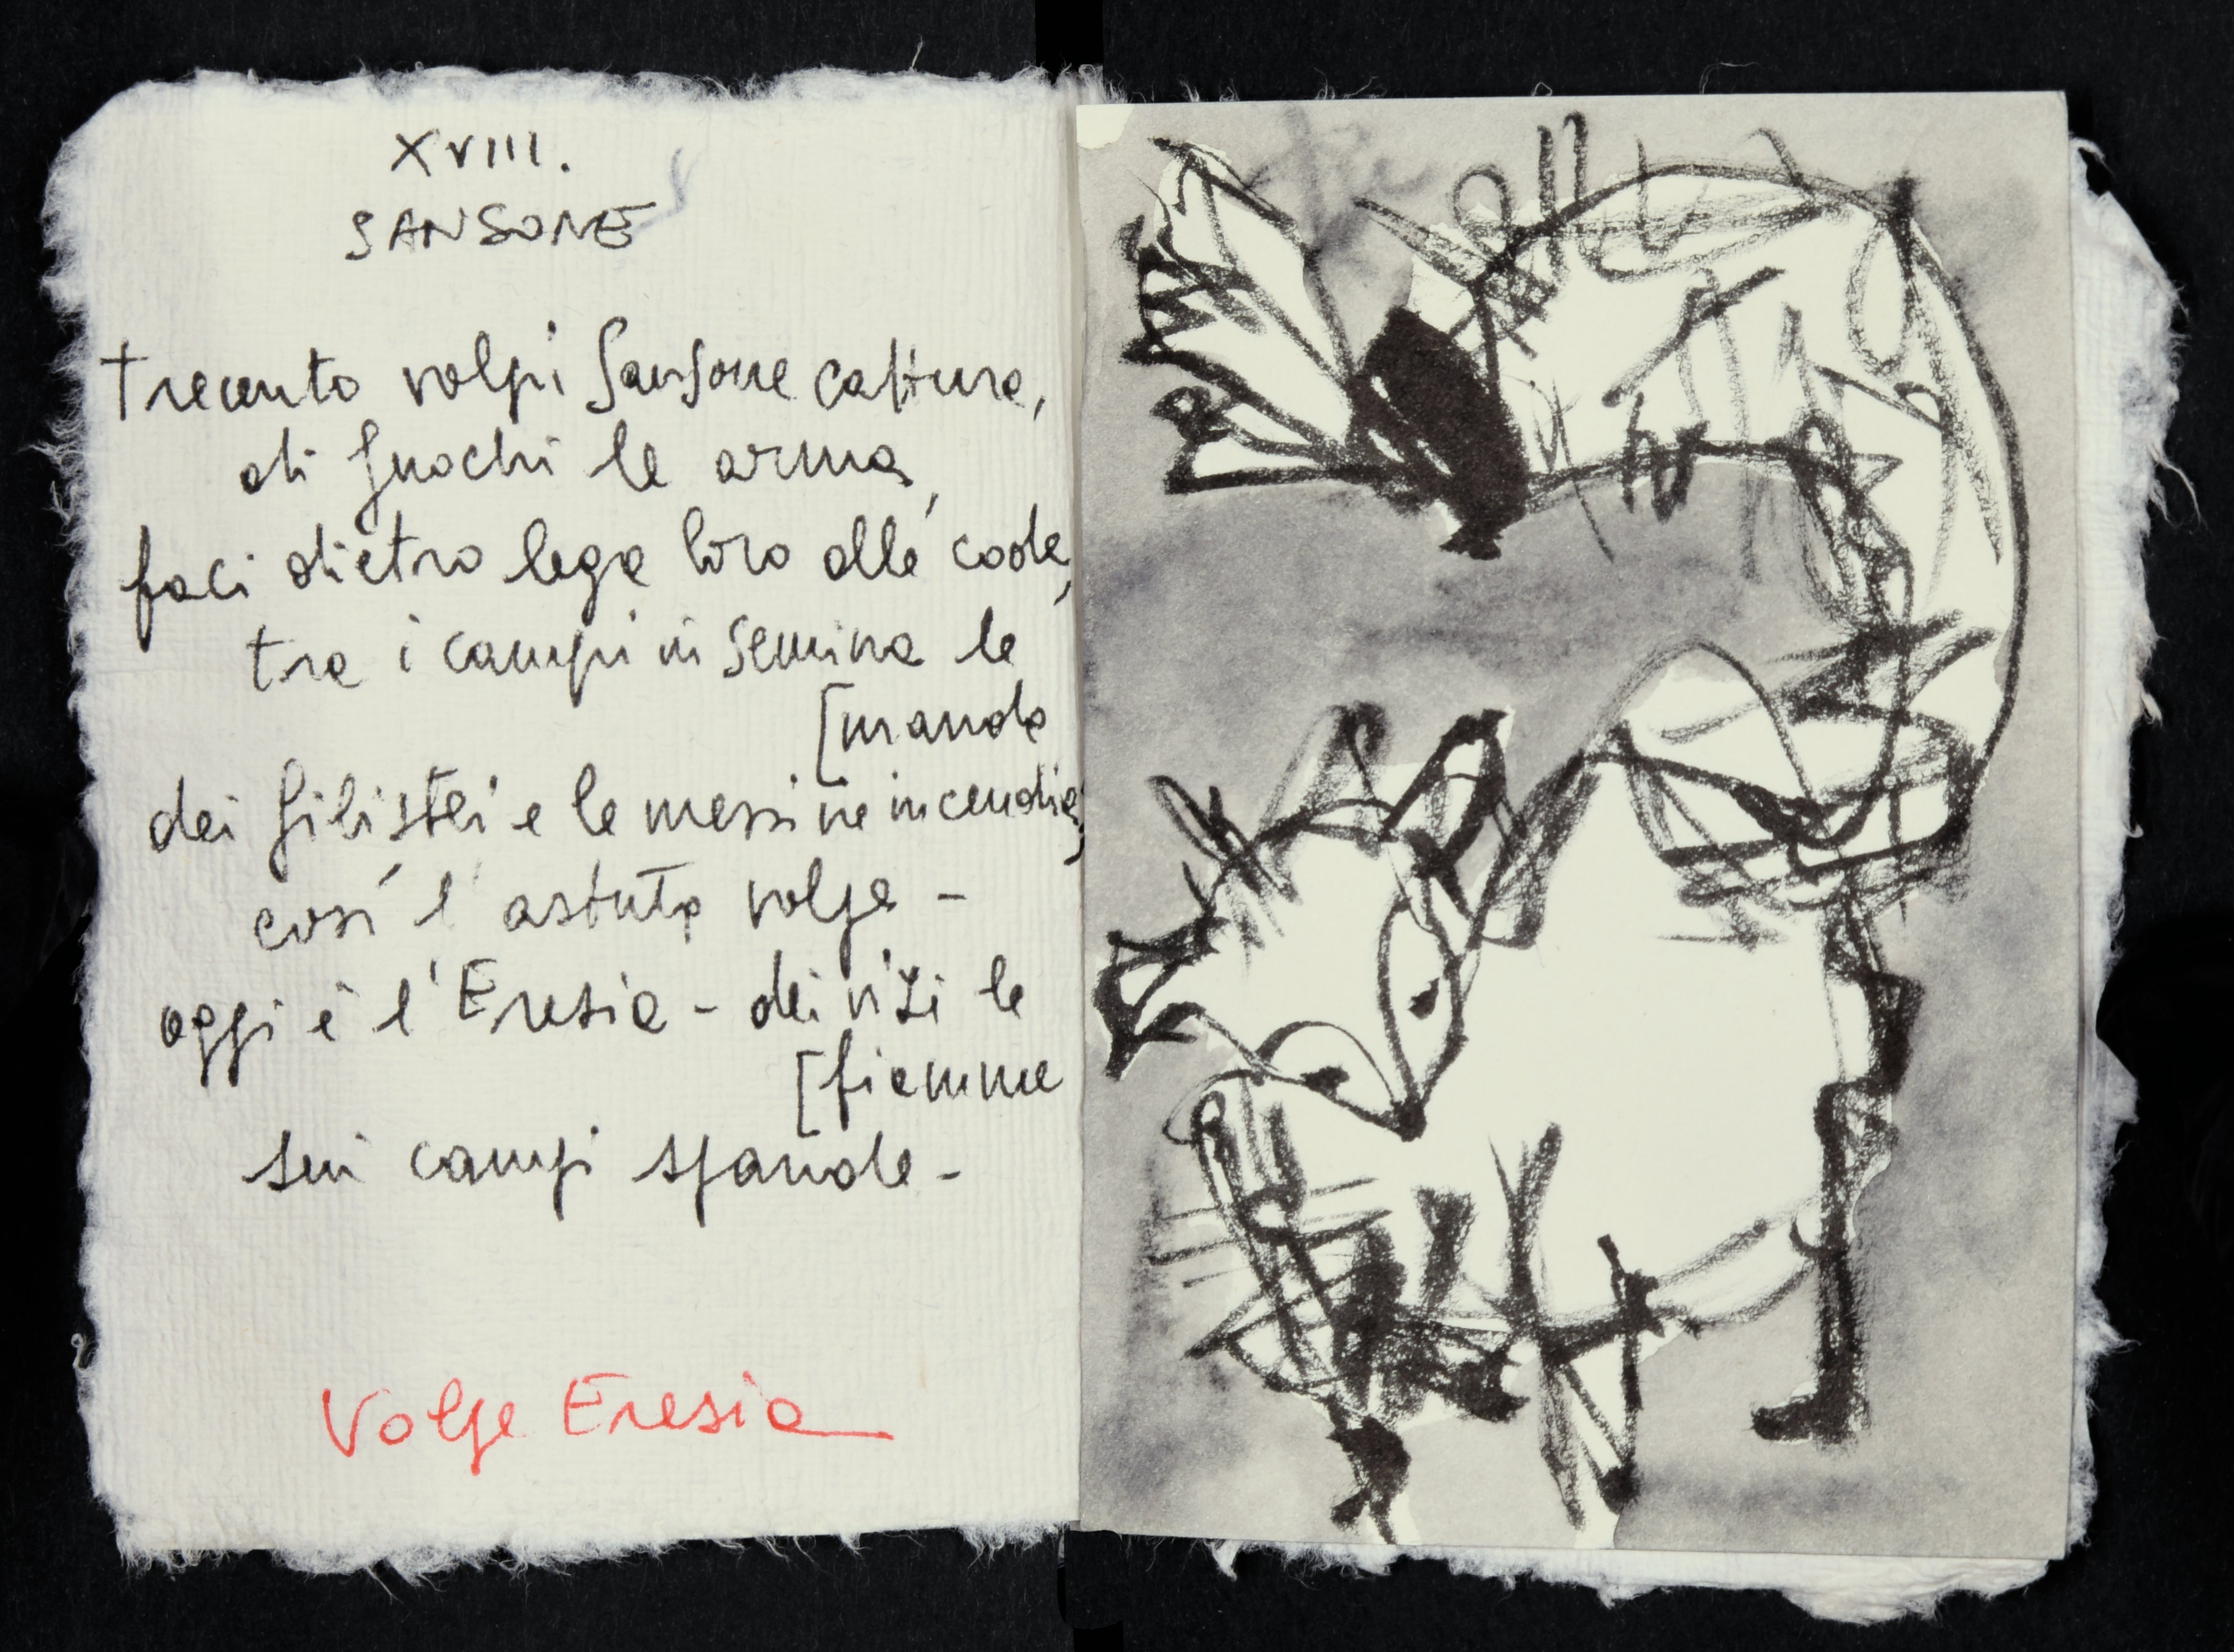 XVIII.
SANSONE
Trecento volpi Sansone cattura,
di fuochi le arma,
faci dietro lega loro alle code,
tra i campi in semina le
[manda
dei filistei e le messi ne incendia;
così l'astuta volpe -
oggi è l'Eresia - dei vizi le
[fiamme
sui campi spande -
Volpe Eresia